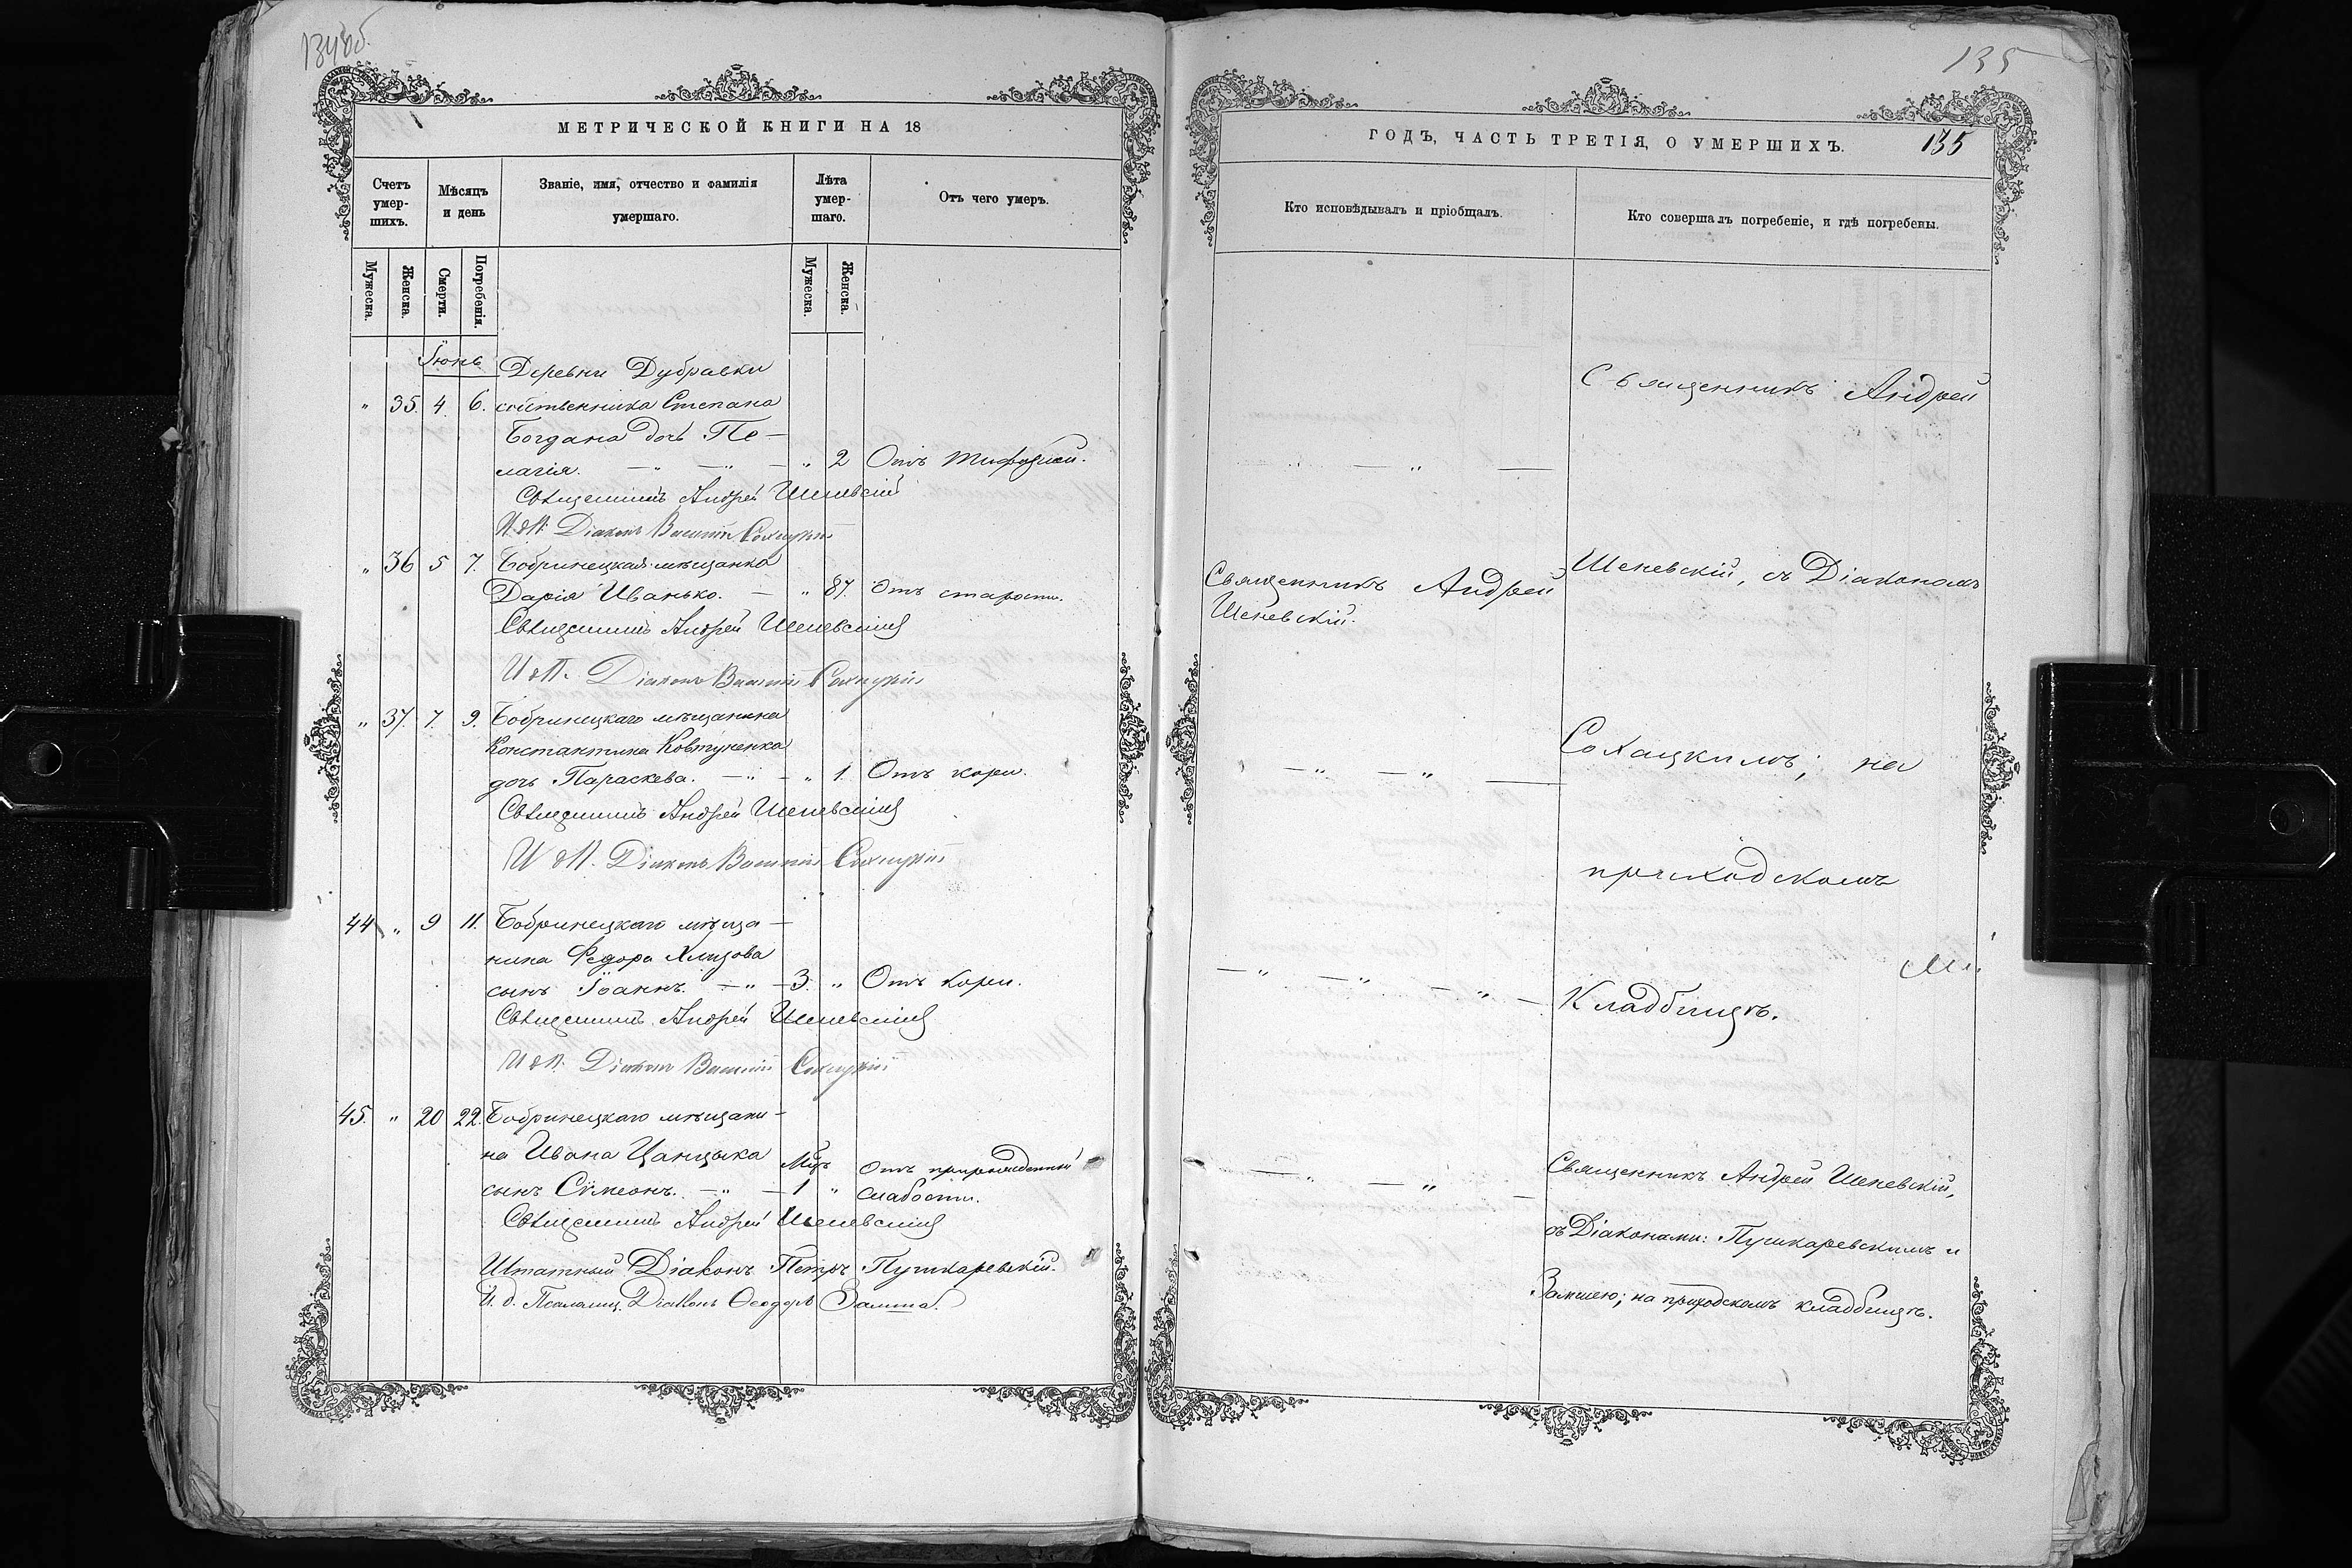 134об.
МЕТРИЧЕСКОЙ КНИГИ НА 18
Счетъ умер-шихъ.
Мѣсяцъ и день
Званіе, имя, отчество и фамилія умершаго.
Лѣта умер-шаго.
Отъ чего умеръ.
Мужеска.
Женска.
Смерти.
Погребенія.
Мужеска.
Женска.
Іюнь
Деревни Дубравки
" 35. 4. 6. собственника Степана
Богдана дочь Пе-
лагія. — " — " — " 2 Отъ
Священникъ Андрей Шеневскій
И. д. П. Діаконъ Василій Сохацкій
" 36 5 7. Бобринецкая мѣщанка
Дарія Иванько. — " 87. Отъ старости.
Священникъ Андрей Шеневскій
И. д. П. Діаконъ Василій Сохацкій
" 37. 7. 9. Бобринецкаго мѣщанина
Константина Ковтуненка
дочь Параскева. — " — " 1. Отъ кори.
Священникъ Андрей Шеневскій
И. д. П. Діаконъ Василій Сохацкій
44 " 9 11. Бобринецкаго мѣща-
нина Федора
сынъ Іоаннъ. — " — 3. " Отъ кори.
Священникъ Андрей Шеневскій
И. д. П. Діаконъ Василій Сохацкій
45. " 20 22. Бобринецкаго мѣщани-
на Ивана Цанцыка Мѣс. Отъ прирожденной
сынъ Сѵмеонъ. — " — 1 " слабости.
Священникъ Андрей Шеневскій
Штатный Діаконъ Петръ Пушкаревскій.
И. д. Псаломщ. Діаконъ Ѳеодоръ Замша.
135
ГОДЪ, ЧАСТЬ ТРЕТІЯ, О УМЕРШИХЪ.
135
Кто исповѣдывалъ и пріобщалъ.
Кто совершалъ погребеніе, и гдѣ погребены.
Священникъ Андрей
— " —
Шеневскій, съ Діакономъ
Священникъ Андрей
Шеневскій.
Сохацкимъ; на
— " — " —
приходскомъ
— " — " — " —
Кладбищѣ.
Священникъ Андрей Шеневскій,
— " — " —
съ Діаконами: Пушкаревскимъ и
Замшею; на приходскомъ кладбищѣ.